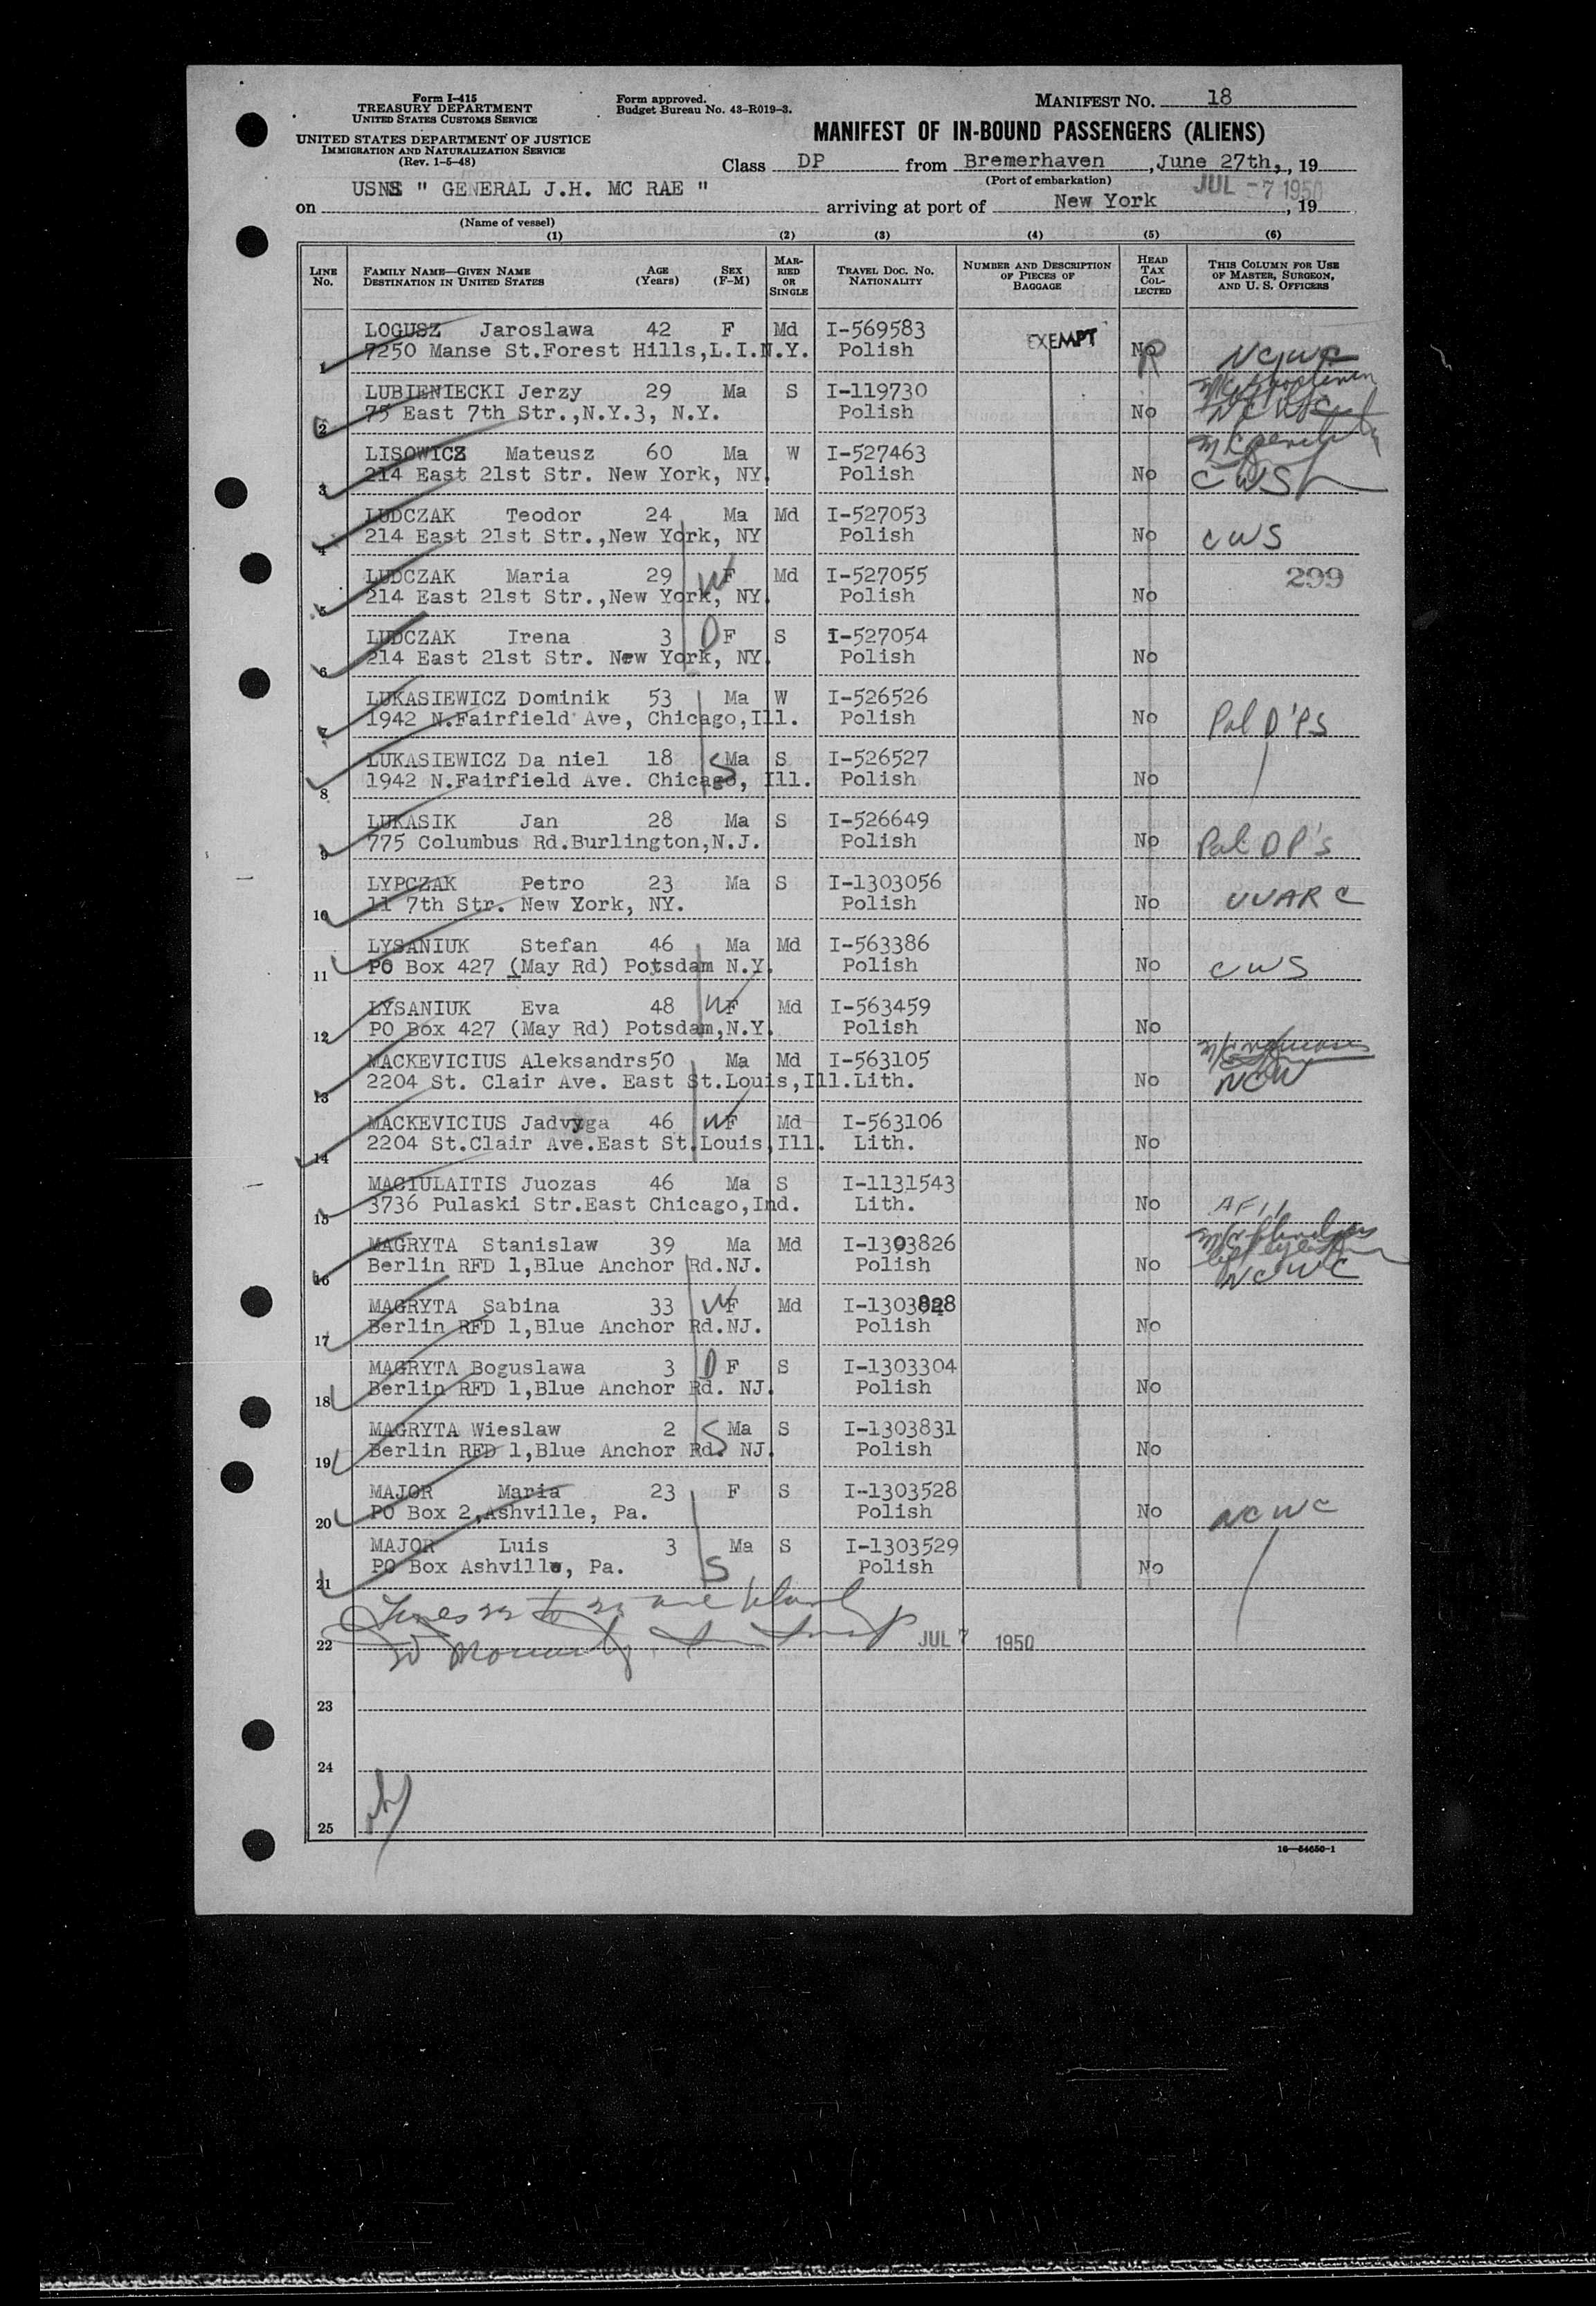 Form I-415
TREASURY DEPARTMENT
UNITED STATES CUSTOMS SERVICE
UNITED STATES DEPARTMENT OF JUSTICE
IMMIGRATION AND NATURALIZATION SERVICE
(Rev. 1-5-48)
Form approved.
Budget Bureau No. 43-R019-3.
MANIFEST NO. 18
MANIFEST OF IN-BOUND PASSENGERS (ALIENS)
Class DP from Bremerhaven, June 27th, , 19
(Port of embarkation)
JUL -7 1950
on USNS " GENERAL J.H. MC RAE " arriving at port of New York , 19
(Name of vessel)
(1) (2) (3) (4) (5) (6)
LINE NO. FAMILY NAME—GIVEN NAME DESTINATION IN UNITED STATES AGE (Years) SEX (F-M) MARRIED OR SINGLE TRAVEL DOC. NO. NATIONALITY NUMBER AND DESCRIPTION OF PIECES OF BAGGAGE HEAD TAX COLLECTED THIS COLUMN FOR USE OF MASTER, SURGEON, AND U. S. OFFICERS
LOGUSZ Jaroslawa 42 F Md I-569583 EXEMPT
1 7250 Manse St.Forest Hills,L.I.N.Y. Polish No R NCWC
LUBIENIECKI Jerzy 29 Ma S I-119730
2 75 East 7th Str.,N.Y.3, N.Y. Polish No NCWC
LISOWICZ Mateusz 60 Ma W I-527463
3 214 East 21st Str. New York, NY. Polish No CWS
LUDCZAK Teodor 24 Ma Md I-527053
4 214 East 21st Str.,New York, NY Polish No CWS
LUDCZAK Maria 29 W F Md I-527055 299
5 214 East 21st Str.,New York, NY. Polish No
LUDCZAK Irena 3 D F S I-527054
6 214 East 21st Str. New York, NY. Polish No
LUKASIEWICZ Dominik 53 Ma W I-526526
7 1942 N.Fairfield Ave, Chicago,Ill. Polish No Pol D'PS
LUKASIEWICZ Da niel 18 S Ma S I-526527
8 1942 N.Fairfield Ave. Chicago, Ill. Polish No
LUKASIK Jan 28 Ma S I-526649
9 775 Columbus Rd.Burlington,N.J. Polish No Pol DP's
LYPCZAK Petro 23 Ma S I-1303056
10 11 7th Str. New York, NY. Polish No UUARC
LYSANIUK Stefan 46 Ma Md I-563386
11 PO Box 427 (May Rd) Potsdam N.Y. Polish No CWS
LYSANIUK Eva 48 W F Md I-563459
12 PO Box 427 (May Rd) Potsdam,N.Y. Polish No
MACKEVICIUS Aleksandrs 50 Ma Md I-563105
13 2204 St. Clair Ave. East St.Louis,Ill. Lith. No NCW
MACKEVICIUS Jadvyga 46 W F Md I-563106
14 2204 St.Clair Ave.East St.Louis,Ill. Lith. No
MACIULAITIS Juozas 46 Ma S I-1131543
15 3736 Pulaski Str.East Chicago,Ind. Lith. No
MAGRYTA Stanislaw 39 Ma Md I-1303826
16 Berlin RFD 1,Blue Anchor Rd.NJ. Polish No NCWC
MAGRYTA Sabina 33 W F Md I-1303828
17 Berlin RFD 1,Blue Anchor Rd.NJ. Polish No
MAGRYTA Boguslawa 3 D F S I-1303304
18 Berlin RFD 1,Blue Anchor Rd. NJ. Polish No
MAGRYTA Wieslaw 2 S Ma S I-1303831
19 Berlin RFD 1,Blue Anchor Rd. NJ. Polish No
MAJOR Maria 23 F S I-1303528
20 PO Box 2,Ashville, Pa. Polish No NCWC
MAJOR Luis 3 Ma S I-1303529
21 PO Box Ashville, Pa. S Polish No
Lines 22 to 25 are blank
22 JUL 7 1950
23
24
25
16—54650-1